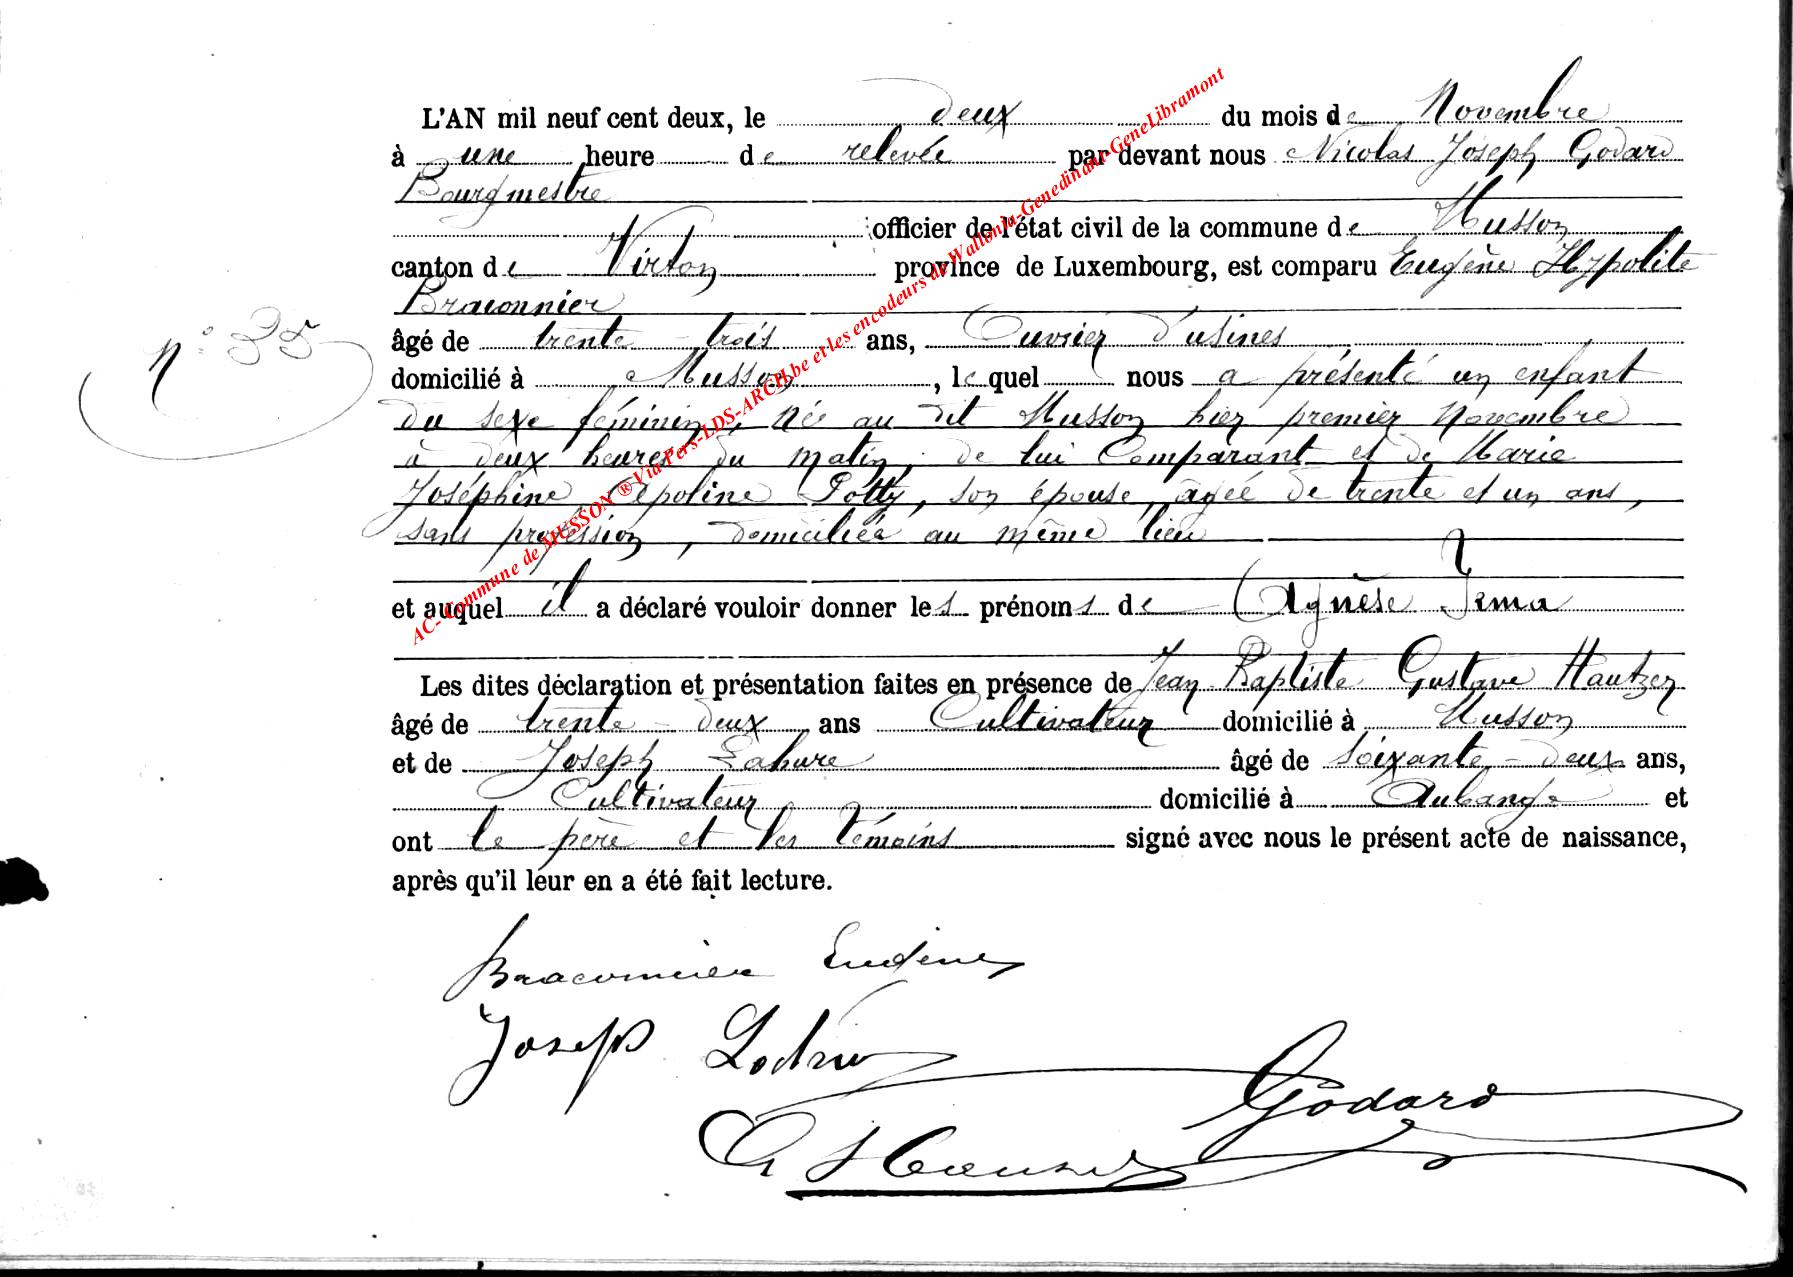 L'AN mil neuf cent deux, le deux du mois de Novembre
à une heure de relevée par devant nous Nicolas Joseph Godard
Bourgmestre
officier de l'état civil de la commune de Musson
canton de Virton province de Luxembourg, est comparu Eugène Hypolite
Braconnier
N° 35
âgé de trente-trois ans, Ouvrier d'usines
domicilié à Musson, lequel nous a présenté un enfant
du sexe féminin, né au dit Musson hier premier Novembre
à deux heures du matin, de lui Comparant et de Marie
Joséphine Apoline Potty, son épouse, âgée de trente et un ans,
sans profession, domiciliée au même lieu
et auquel il a déclaré vouloir donner les prénoms de Agnèse Irma
Les dites déclaration et présentation faites en présence de Jean Baptiste Gustave Hautzer
âgé de trente-deux ans Cultivateur domicilié à Musson
et de Joseph Lahure âgé de soixante-deux ans,
Cultivateur domicilié à Aubange et
ont le père et les témoins signé avec nous le présent acte de naissance,
après qu'il leur en a été fait lecture.
Braconnier Eugène
Joseph
Godard
G
AC- Commune de MUSSON ® Via Pers-LDS-ARCH.be et les encodeurs de Wallonia-Genedinant-GeneLibramont